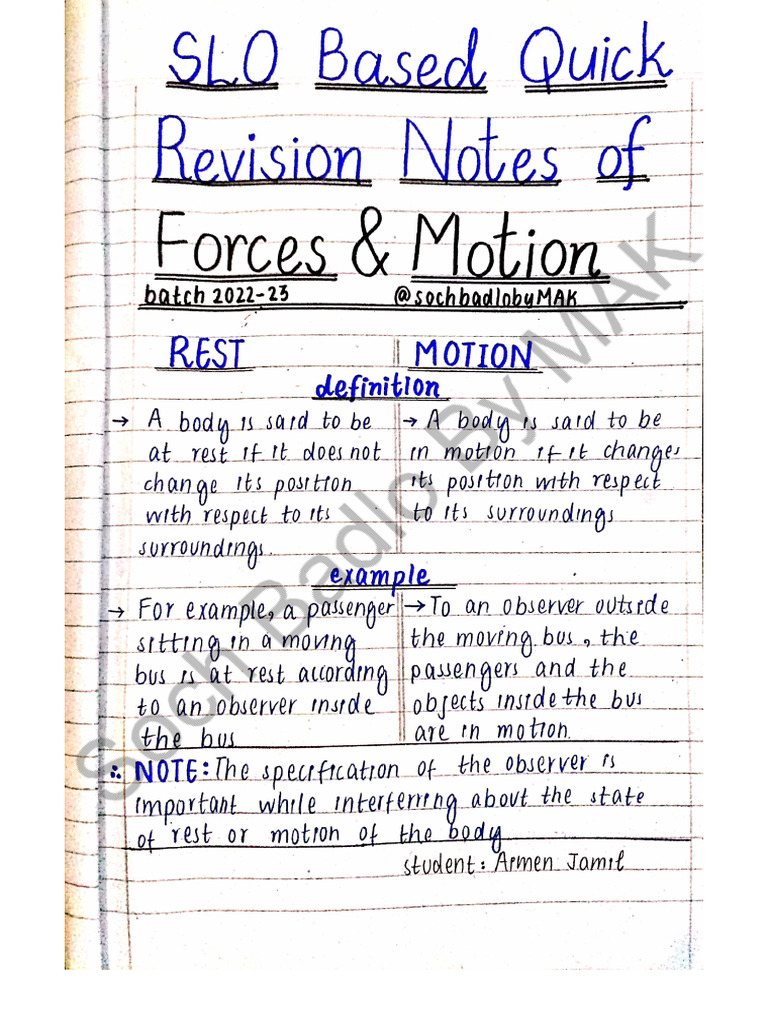 SLO Based Quick
Revision Notes of
Forces & Motion
batch 2022-23 @sochbadlobyMAK
REST
MOTION
definition
→ A body is said to be
at rest if it does not
change its position
with respect to its
surroundings.
→ A body is said to be
in motion if it changes
its position with respect
to its surroundings
example
→ For example, a passenger
sitting in a moving
bus is at rest according
to an observer inside
the bus
→ To an observer outside
the moving bus, the
passengers and the
objects inside the bus
are in motion.
∴ NOTE: The specification of the observer is
important while interferring about the state
of rest or motion of the body
student: Armen Jamil
Soch Badlo By MAK